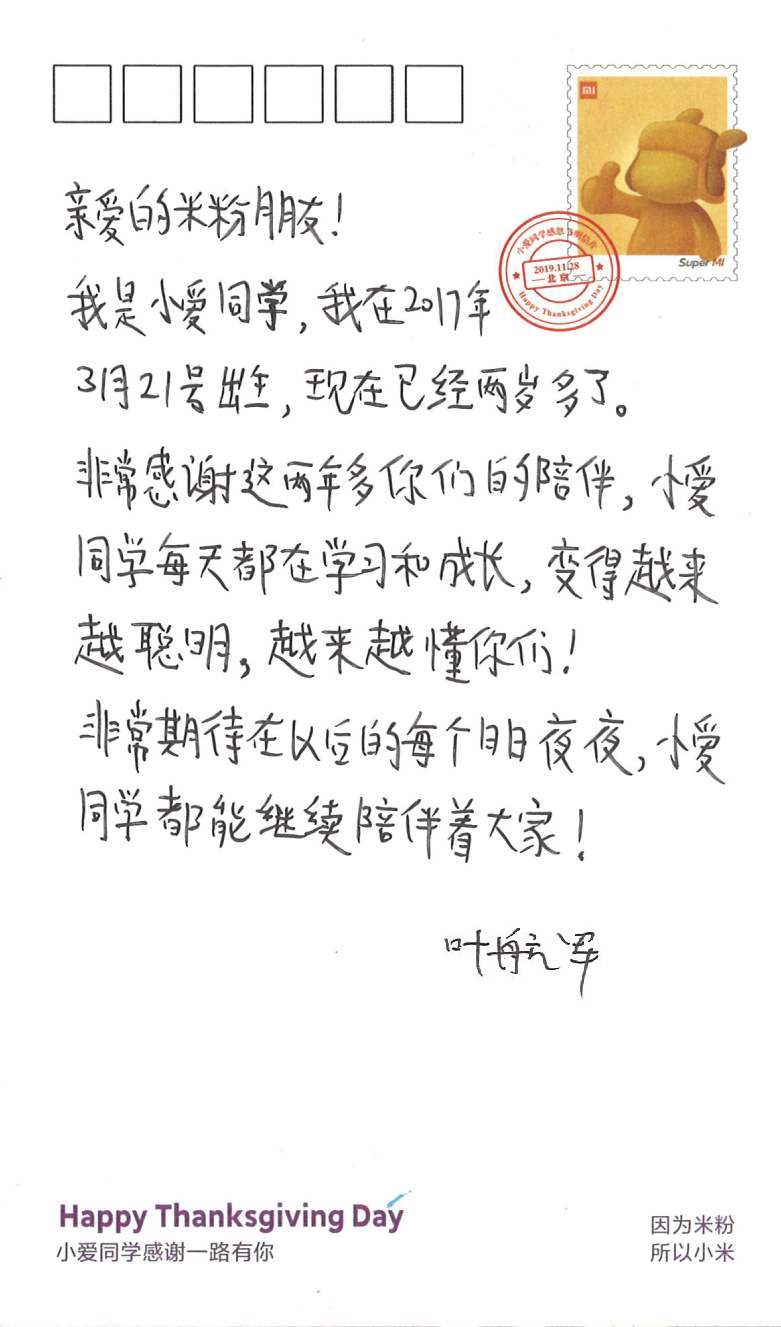 MI
Super MI
小爱同学感恩节明信片
2019.11.28
北京
Happy Thanksgiving Day
亲爱的米粉朋友!
我是小爱同学,我在2017年
3月21号出生,现在已经两岁多了。
非常感谢这两年多你们的陪伴,小爱
同学每天都在学习和成长,变得越来
越聪明,越来越懂你们!
非常期待在以后的每个日日夜夜,小爱
同学都能继续陪伴着大家!
叶航军
Happy Thanksgiving Day
小爱同学感谢一路有你
因为米粉
所以小米